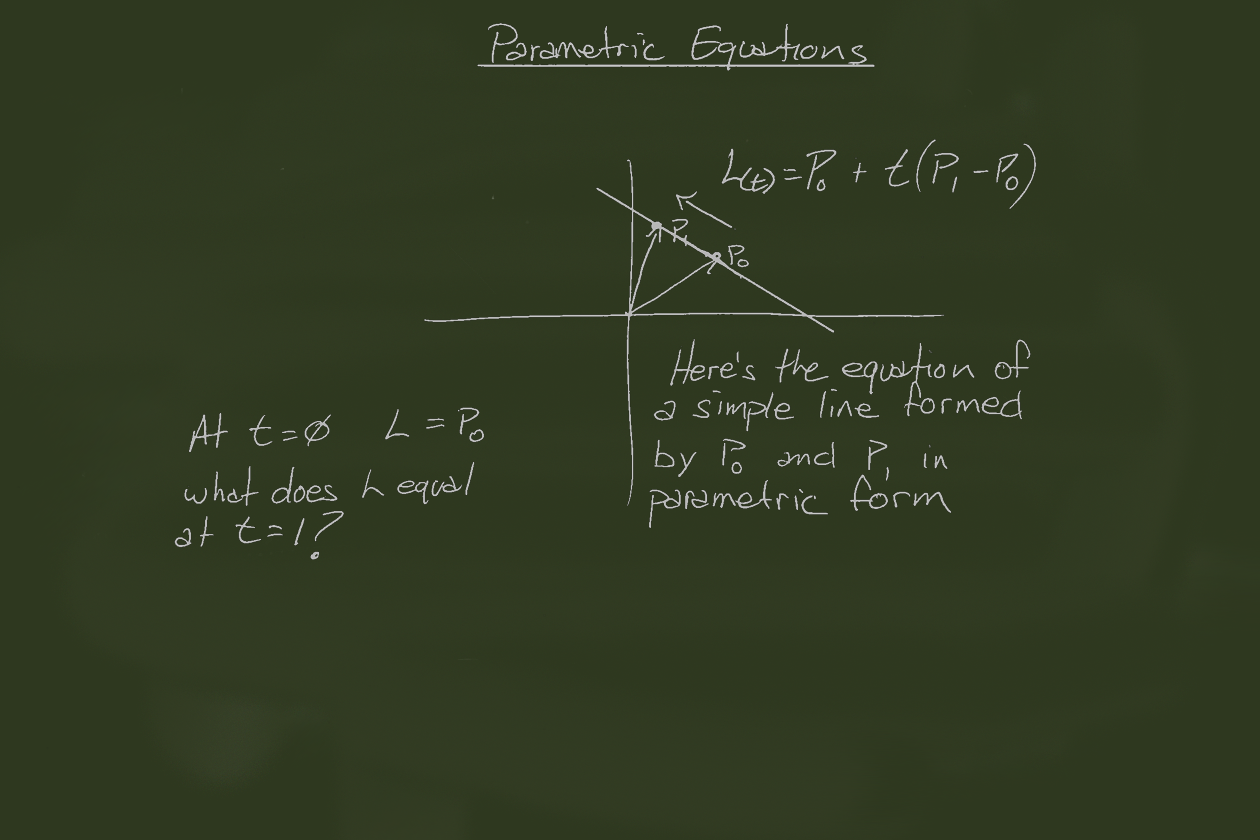 Parametric Equations
L(t) = P₀ + t(P₁ - P₀)
P₁
P₀
Here's the equation of
a simple line formed
by P₀ and P₁ in
parametric form
At t=∅ L = P₀
what does L equal
at t=1?